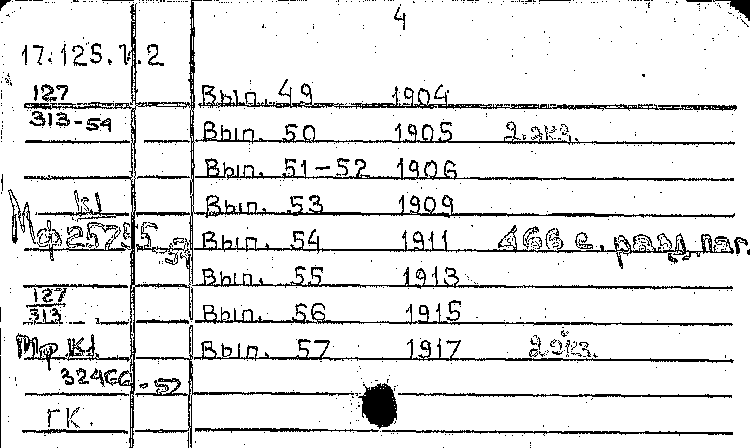 4
17.125.1.2
127
Вып. 49 1904
313-54
Вып. 50 1905 2 экз.
Вып. 51-52 1906
К1
Вып. 53 1909
Мф 25755-
Вып. 54 1911 466 с. разд. паг.
Вып. 55 1913
127
313
Вып. 56 1915
Мф К1
Вып. 57 1917 2 экз.
32466-57
ГК.